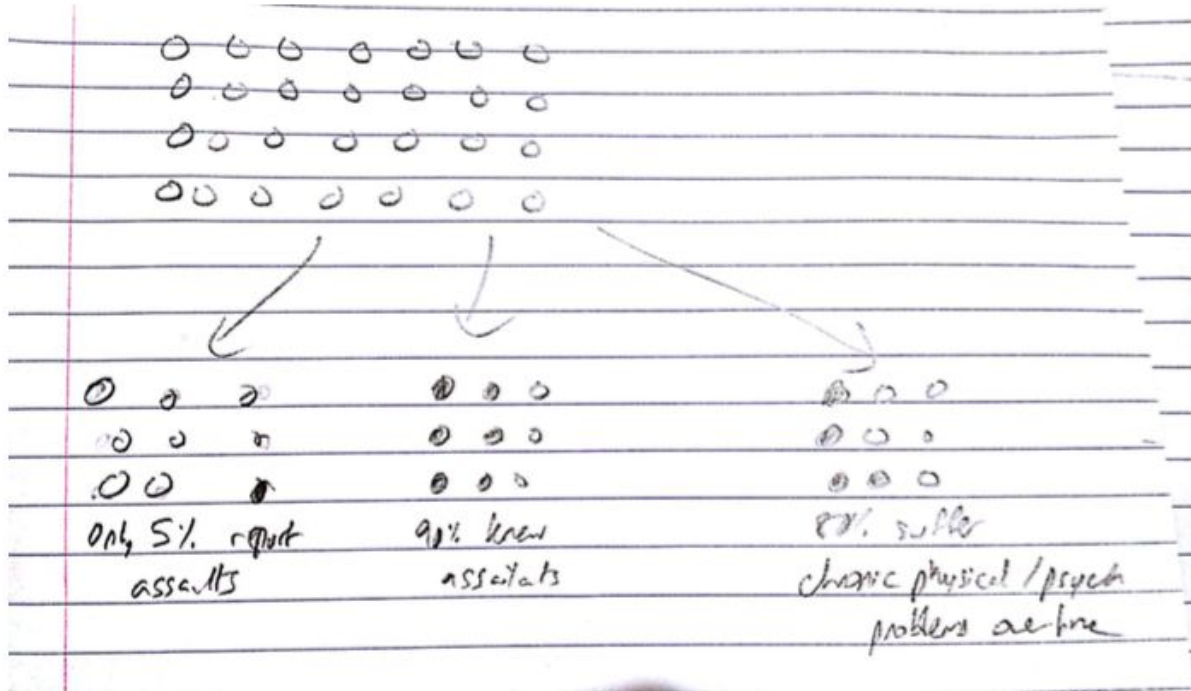 only 5% report
assaults
90% knew
assailats
80% suffer
chronic physical / psych
problems overtime